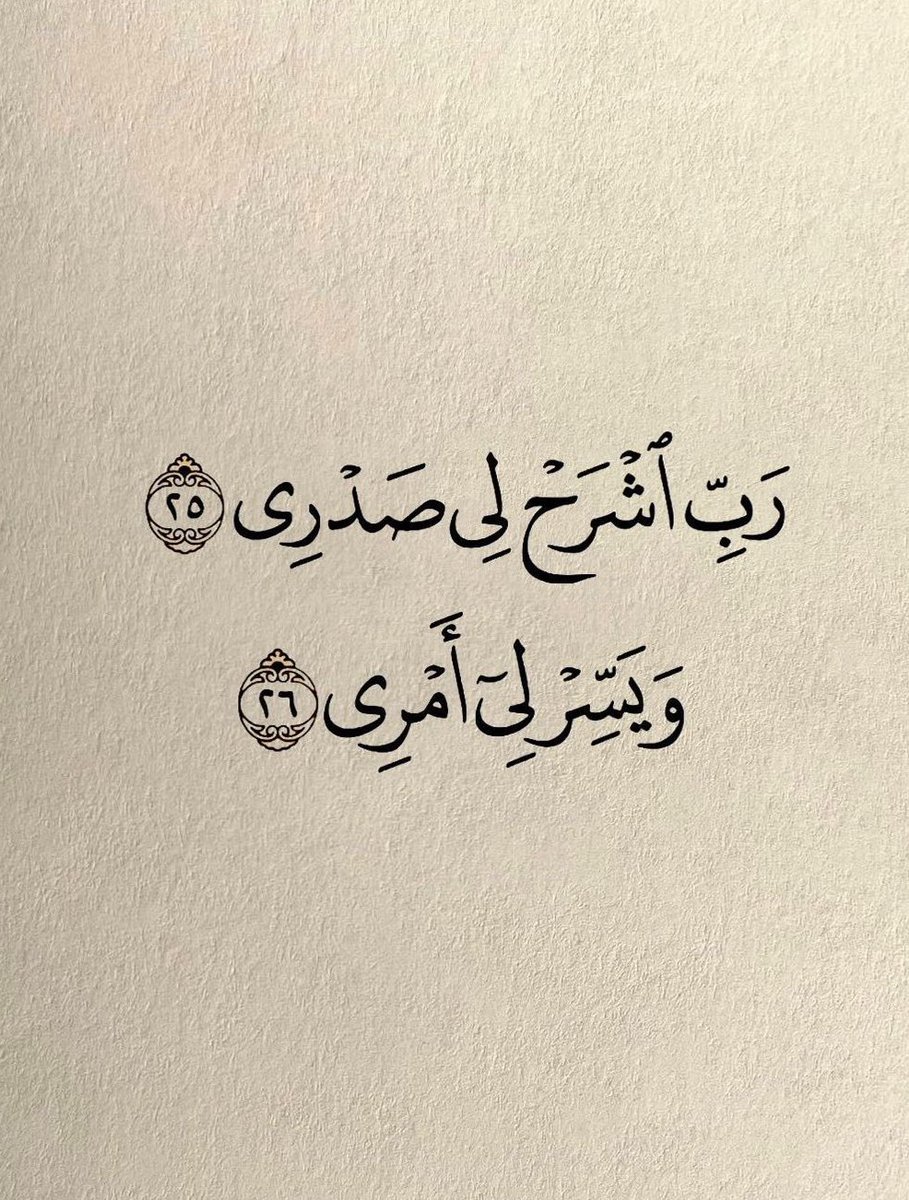 رَبِّ ٱشْرَحْ لِى صَدْرِى ٢٥
وَيَسِّرْ لِىٓ أَمْرِى ٢٦